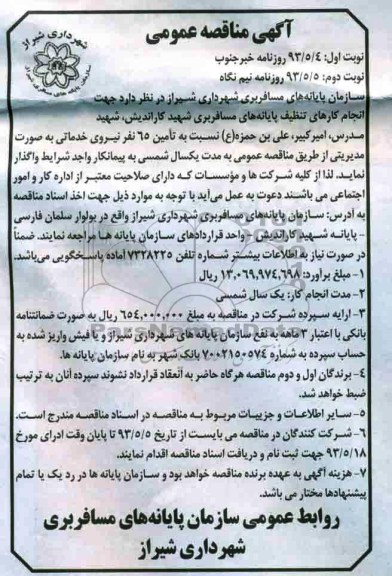 شهرداری شیراز
آگهی مناقصه عمومی
نوبت اول: ۹۳/۵/۴ روزنامه خبرجنوب
نوبت دوم: ۹۳/۵/۵ روزنامه نیم نگاه
سازمان پایانه‌های مسافربری شهرداری شیراز در نظر دارد جهت
انجام کارهای تنظیف پایانه‌های مسافربری شهید کاراندیش، شهید
مدرس، امیرکبیر، علی بن حمزه(ع) نسبت به تأمین ۶۵ نفر نیروی خدماتی به صورت
مدیریتی از طریق مناقصه عمومی به مدت یکسال شمسی به پیمانکار واجد شرایط واگذار
نماید. لذا از کلیه شرکت ها و مؤسسات که دارای صلاحیت معتبر از اداره کار و امور
اجتماعی می باشند دعوت به عمل می‌آید با توجه به موارد ذیل جهت اخذ اسناد مناقصه
به آدرس: سازمان پایانه‌های مسافربری شهرداری شیراز واقع در بولوار سلمان فارسی
- پایانه شهید کاراندیش - واحد قراردادهای سازمان پایانه ها مراجعه نمایند. ضمناً
در صورت نیاز به اطلاعات بیشتر شماره تلفن ۷۳۲۸۲۲۵ آماده پاسخگویی می‌باشد.
۱- مبلغ برآورد: ۱۳,۰۶۹,۹۷۴,۶۹۸ ریال
۲- مدت انجام کار: یک سال شمسی
۳- ارایه سپرده شرکت در مناقصه به مبلغ ۶۵۴,۰۰۰,۰۰۰ ریال به صورت ضمانتنامه
بانکی با اعتبار ۳ ماهه به نفع سازمان پایانه های شهرداری شیراز و یا فیش واریز شده به
حساب سپرده به شماره ۷۰۰۲۱۵۰۵۷۴ بانک شهر به نام سازمان پایانه ها.
۴- برندگان اول و دوم مناقصه هرگاه حاضر به انعقاد قرارداد نشوند سپرده آنان به ترتیب
ضبط خواهد شد.
۵- سایر اطلاعات و جزییات مربوط به مناقصه در اسناد مناقصه مندرج است.
۶- شرکت کنندگان در مناقصه می بایست از تاریخ ۹۳/۵/۵ تا پایان وقت اداری مورخ
۹۳/۵/۱۸ جهت ثبت نام و دریافت اسناد مناقصه اقدام نمایند.
۷- هزینه آگهی به عهده برنده مناقصه خواهد بود و سازمان پایانه ها در رد یک یا تمام
پیشنهادها مختار می باشد.
روابط عمومی سازمان پایانه‌های مسافربری
شهرداری شیراز